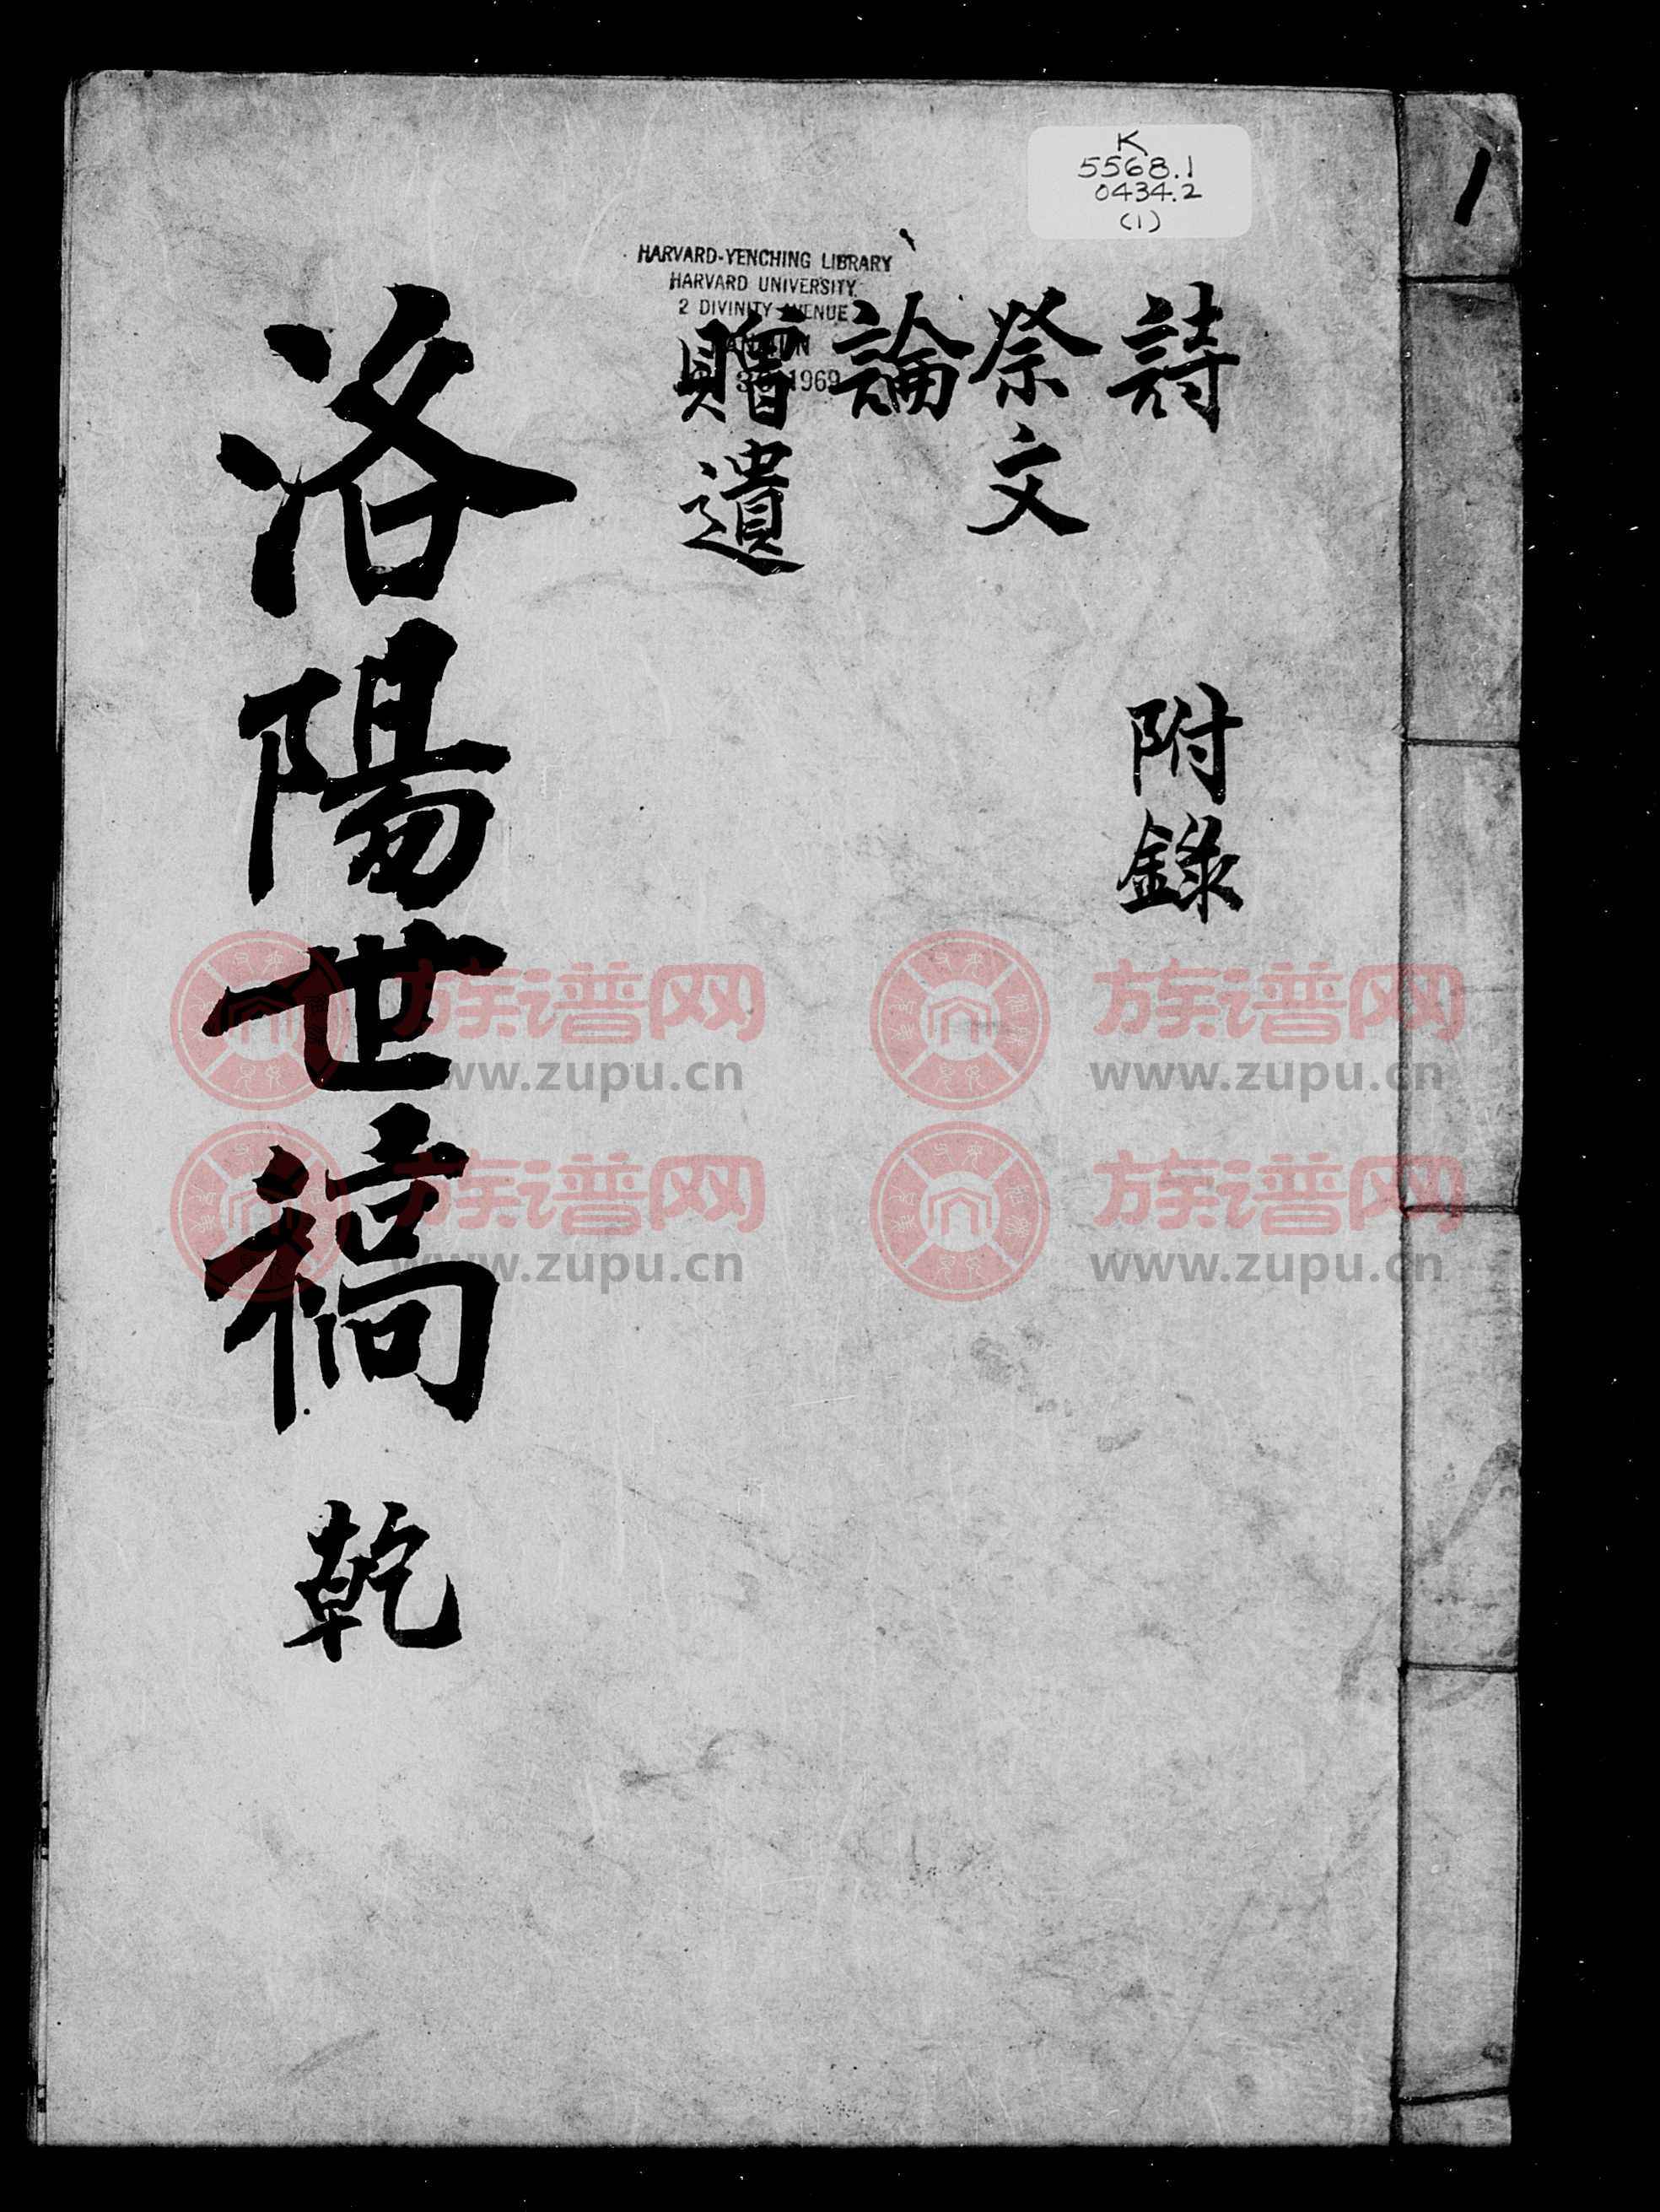 K
5568.1
0434.2
(1)
1
HARVARD-YENCHING LIBRARY
HARVARD UNIVERSITY
2 DIVINITY AVENUE
1969
詩
附錄
祭文
論
贈遺
洛陽世稿 乾
族谱网
www.zupu.cn
族谱网
www.zupu.cn
族谱网
www.zupu.cn
族谱网
www.zupu.cn